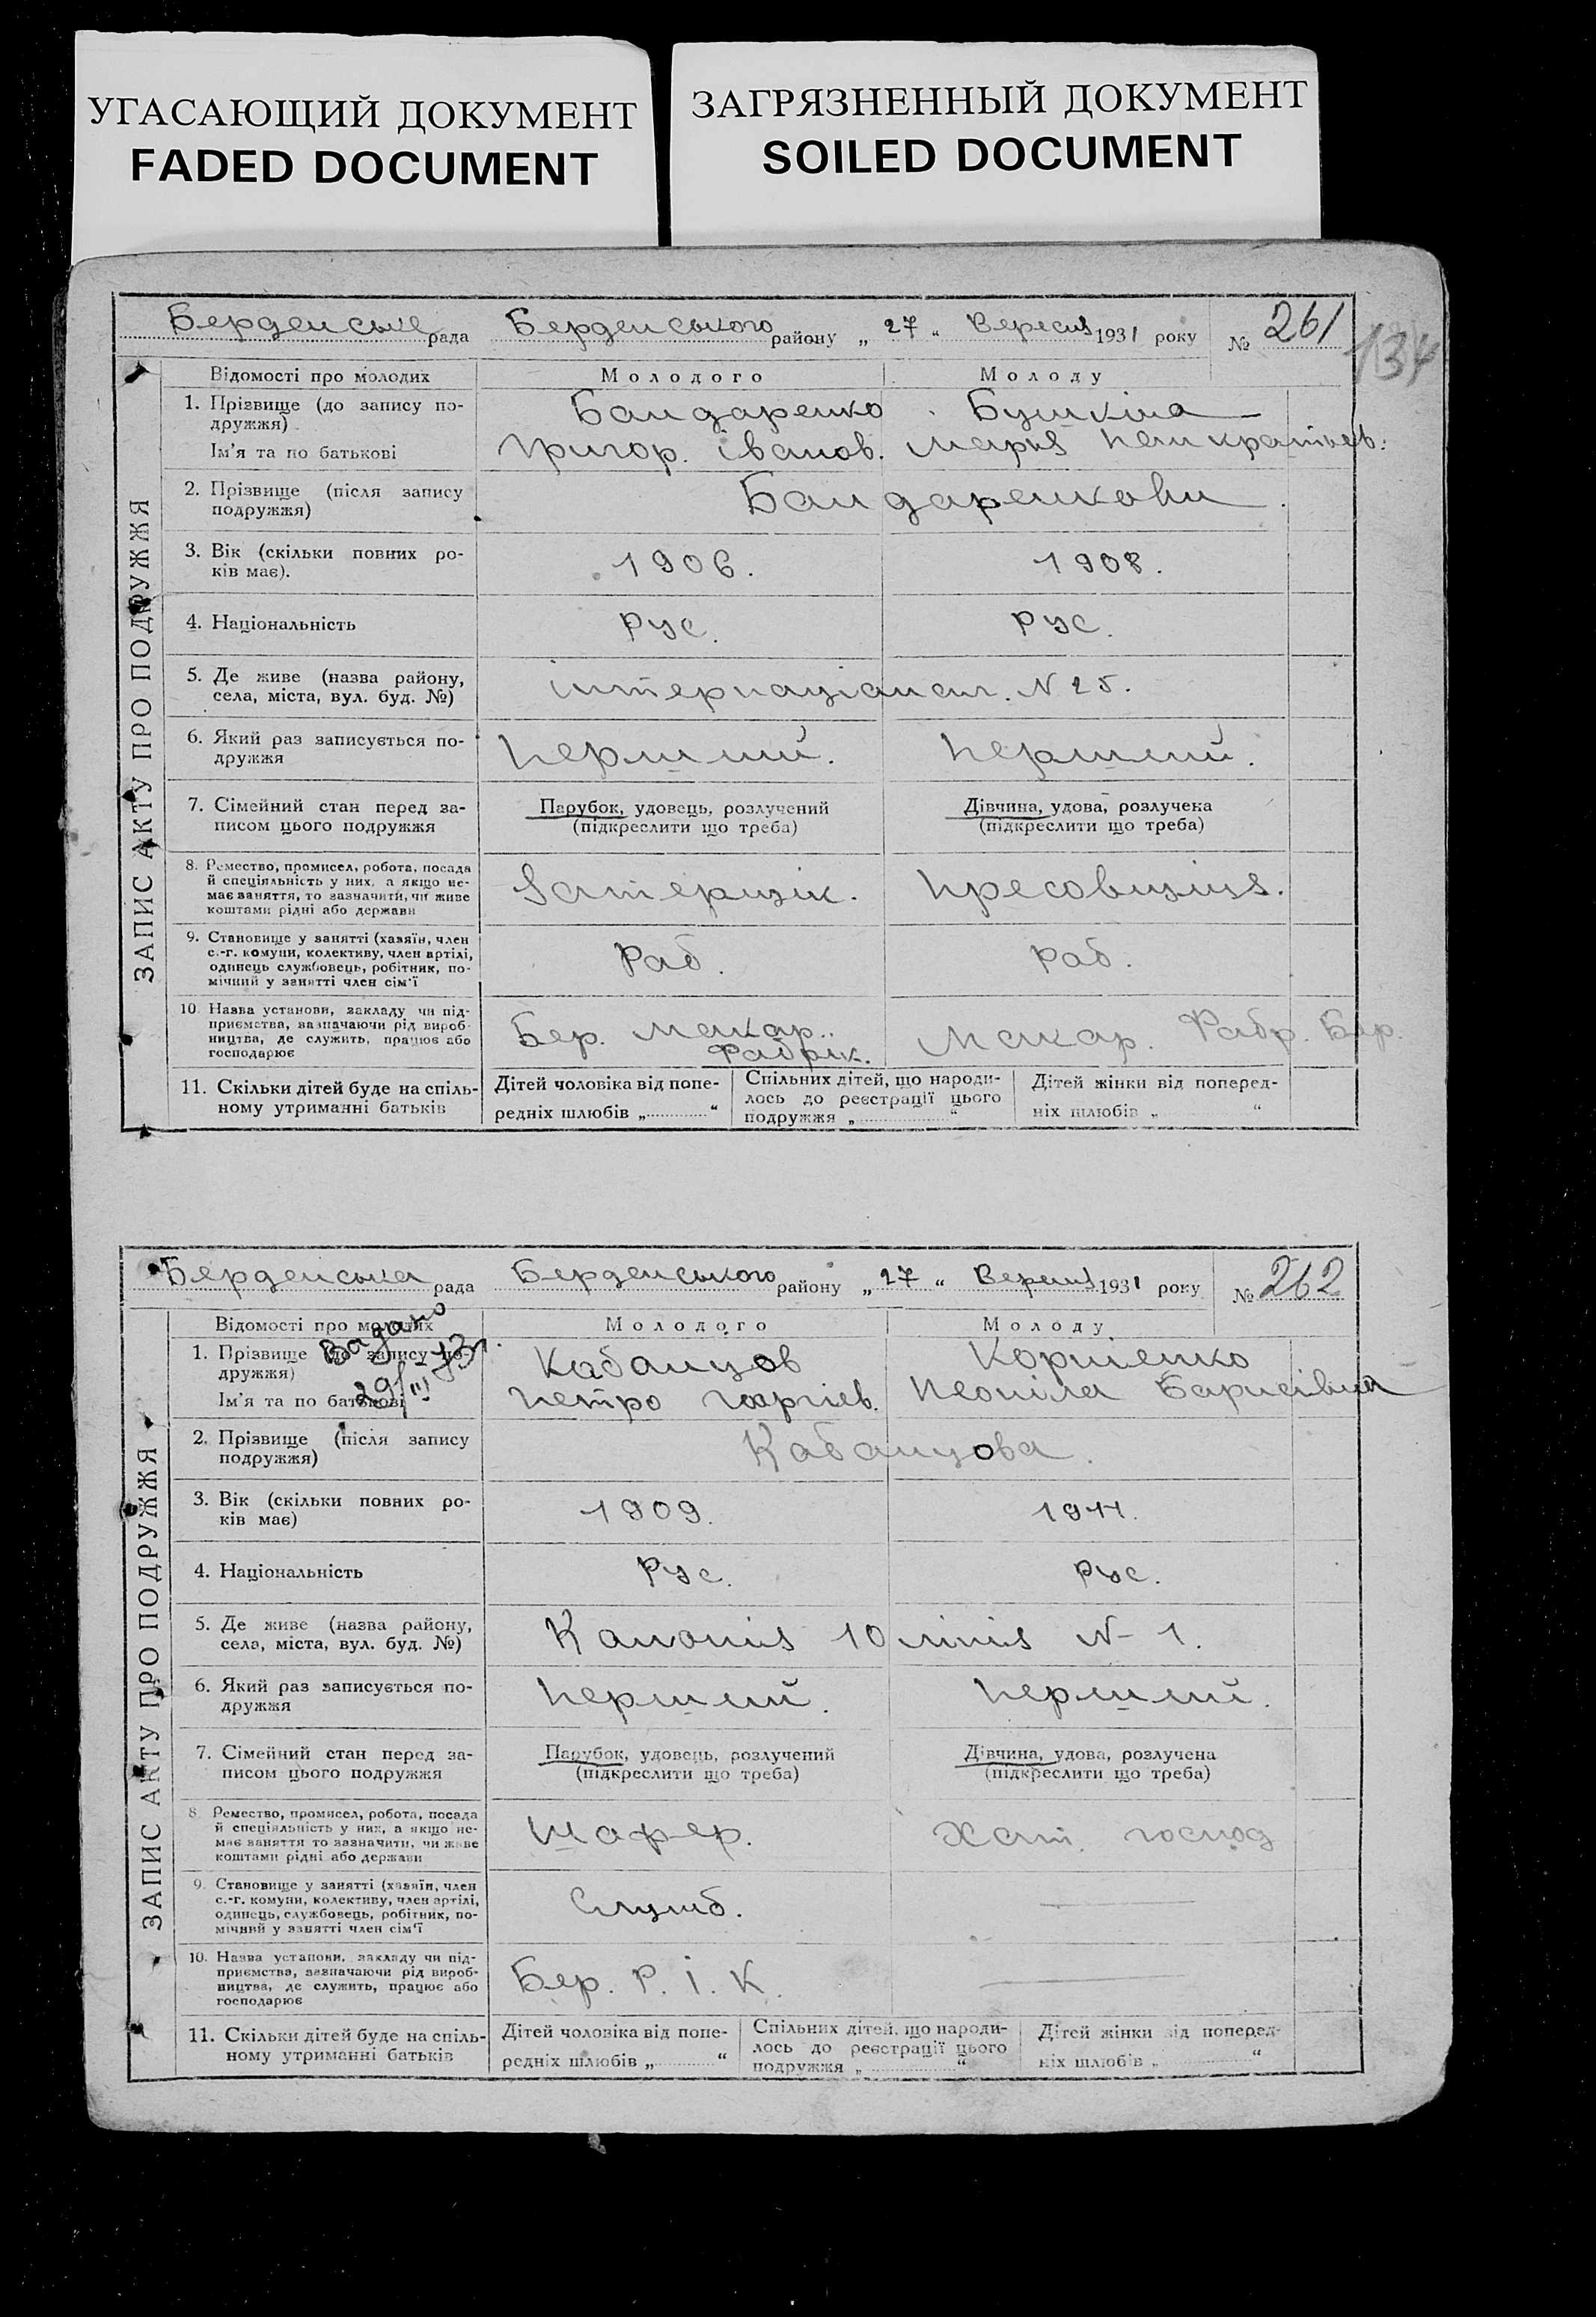 УГАСАЮЩИЙ ДОКУМЕНТ
FADED DOCUMENT
ЗАГРЯЗНЕННЫЙ ДОКУМЕНТ
SOILED DOCUMENT
134
Берденське рада Берденського району „ 27 “ Вересня 1931 року № 261
ЗАПИС АКТУ ПРО ПОДРУЖЖЯ
Відомості про молодих Молодого Молоду
1. Прізвище (до запису по- Бандаренко Бушкіна
дружжя)
Ім'я та по батькові Григор. іванов. Марія Панкратьев.
2. Прізвище (після запису Бандаренкови.
подружжя)
3. Вік (скільки повних ро- 1906. 1908.
ків має).
4. Національність Рус. Рус.
5. Де живе (назва району, інтернаціонал. N 25.
села, міста, вул. буд. №)
6. Який раз записується по- перший. перший.
дружжя
7. Сімейний стан перед за- Парубок, удовець, розлучений Дівчина, удова, розлучена
писом цього подружжя (підкреслити що треба) (підкреслити що треба)
8. Ремество, промисел, робота, посада
й спеціяльність у них, а якщо не-
має заняття, то зазначити, чи живе пресовщиця.
коштами рідні або держави
9. Становище у занятті (хазяїн, член
с.-г. комуни, колективу, член артілі, Раб. раб.
одинець службовець, робітник, по-
мічний у занятті член сім'ї
10. Назва установи, закладу чи під-
приємства, зазначаючи рід вироб- Бер. Макар. Макар. Фабр. Бер.
ництва, де служить, працює або Фабрик.
господарює
11. Скільки дітей буде на спіль- Дітей чоловіка від попе- Спільних дітей, що народи- Дітей жінки від поперед-
ному утриманні батьків редніх шлюбів „ “ лось до реєстрації цього ніх шлюбів „ “
подружжя „ “
Берденська рада Берденського району „ 27 “ Вересня 1931 року № 262
ЗАПИС АКТУ ПРО ПОДРУЖЖЯ
Відомості про молодих Молодого Молоду
1. Прізвище (до запису по- Кабанцов Корниенко
дружжя)
Ім'я та по батькові Петро Георгіев. Неоніла Барисівна
2. Прізвище (після запису Кабанцова.
подружжя)
3. Вік (скільки повних ро- 1909. 1911.
ків має)
4. Національність Рус. Рус.
5. Де живе (назва району, Калонія 10 лінія N- 1.
села, міста, вул. буд. №)
6. Який раз записується по- перший. перший.
дружжя
7. Сімейний стан перед за- Парубок, удовець, розлучений Дівчина, удова, розлучена
писом цього подружжя (підкреслити що треба) (підкреслити що треба)
8. Ремество, промисел, робота, посада
й спеціяльність у них, а якщо не- Шофер. Хат. господ
має заняття то зазначити, чи живе
коштами рідні або держави
9. Становище у занятті (хазяїн, член
с.-г. комуни, колективу, член артілі, Служб.
одинець, службовець, робітник, по-
мічний у занятті член сім'ї
10. Назва установи, закладу чи під-
приємства, зазначаючи рід вироб- Бер. Р. І. К.
ництва, де служить, працює або
господарює
11. Скільки дітей буде на спіль- Дітей чоловіка від попе- Спільних дітей, що народи- Дітей жінки від поперед-
ному утриманні батьків редніх шлюбів „ “ лось до реєстрації цього ніх шлюбів „ “
подружжя „ “